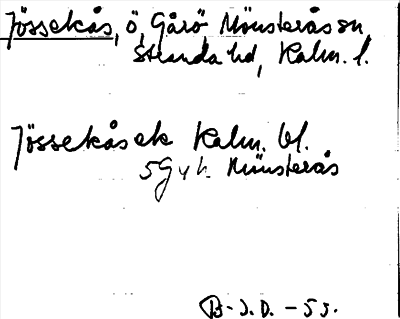 Jössekås, ö, Gårö, Mönsterås sn,
Stranda hd, Kalm. l.
Jössekås ek Kalm. bl.
5G v h Mönsterås
B-J.D. -53.